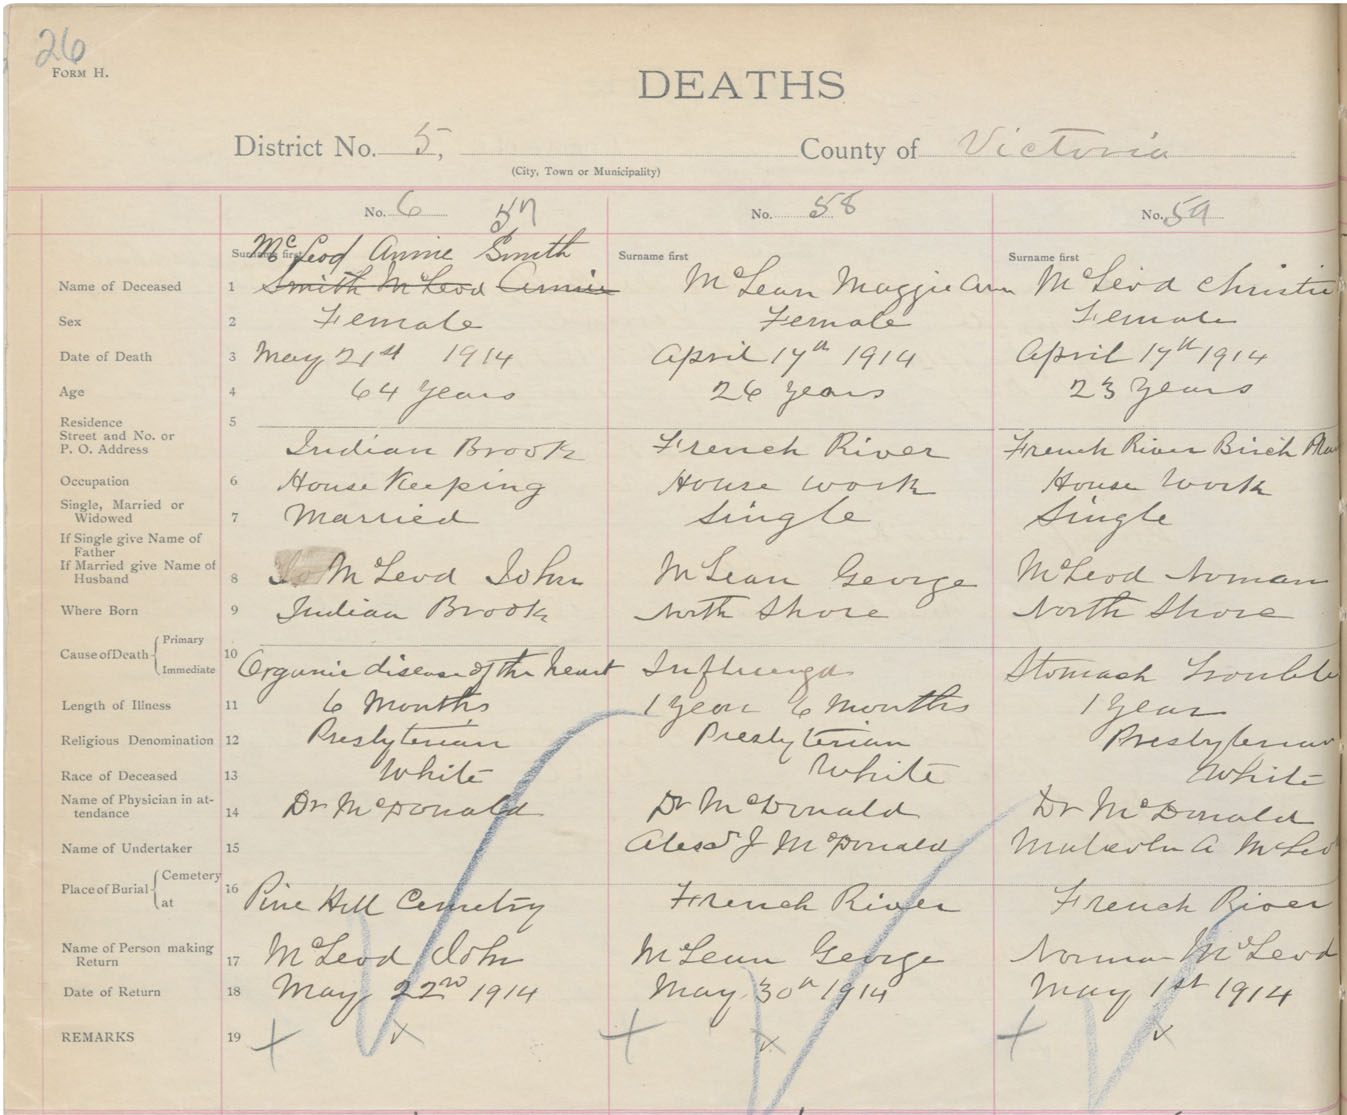 26
FORM H.
DEATHS
District No. 5, County of Victoria
(City, Town or Municipality)
No. 6 57 No. 58 No. 59
Surname first McLeod Annie Smith Surname first Surname first
Name of Deceased 1 Smith McLeod Annie McLean Maggie Ann McLeod Christie
Sex 2 Female Female Female
Date of Death 3 May 21st 1914 April 17th 1914 April 17th 1914
Age 4 64 years 26 years 23 years
Residence 5
Street and No. or
P. O. Address Indian Brook French River French River Birch
Occupation 6 House Keeping House work House work
Single, Married or
Widowed 7 Married Single Single
If Single give Name of
Father
If Married give Name of
Husband 8 McLeod John McLean George McLeod Norman
Where Born 9 Indian Brook North Shore North Shore
Cause of Death Primary
10
Immediate Organic disease of the heart Influenza Stomach Trouble
Length of Illness 11 6 Months 1 year 6 months 1 year
Religious Denomination 12 Presbyterian Presbyterian Presbyterian
Race of Deceased 13 White White White
Name of Physician in at-
tendance 14 Dr McDonald Dr McDonald Dr McDonald
Name of Undertaker 15 Alexdr J McDonald Malcolm A McLeod
Place of Burial Cemetery
16
at Pine Hill Cemetry French River French River
Name of Person making
Return 17 McLeod John McLean George Norman McLeod
Date of Return 18 May 22nd 1914 May 30th 1914 May 1st 1914
REMARKS 19 + x + x + x